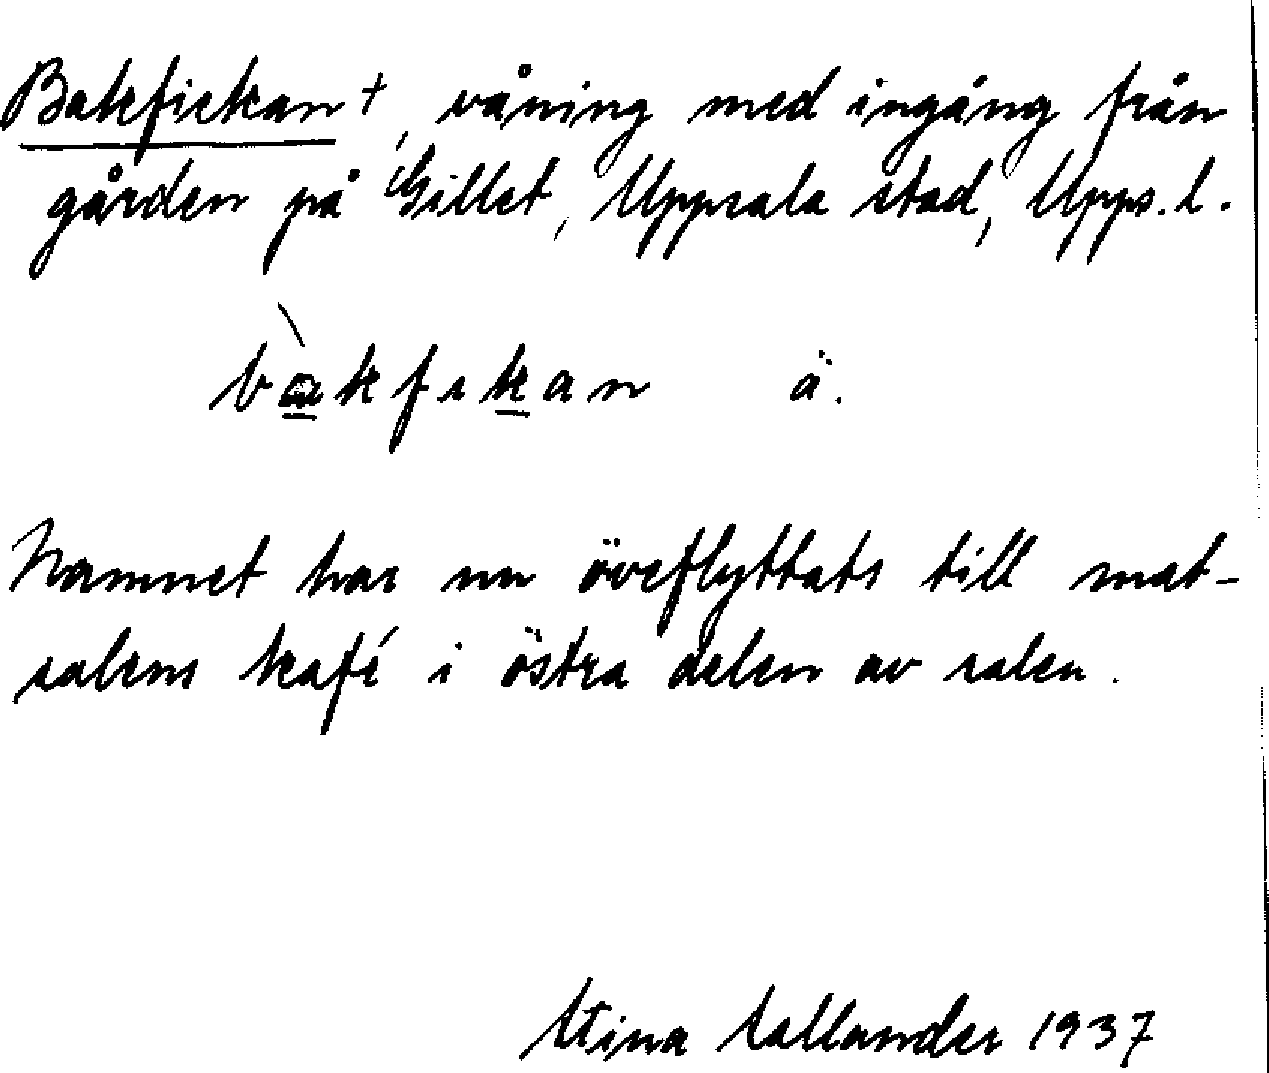 Bakfickan +, våning med ingång från
gården på Gillet, Uppsala stad, Upps. l.
bàkfikan ä.
Namnet har nu överflyttats till mat-
salens kafé i östra delen av salen.
Stina Callander 1937